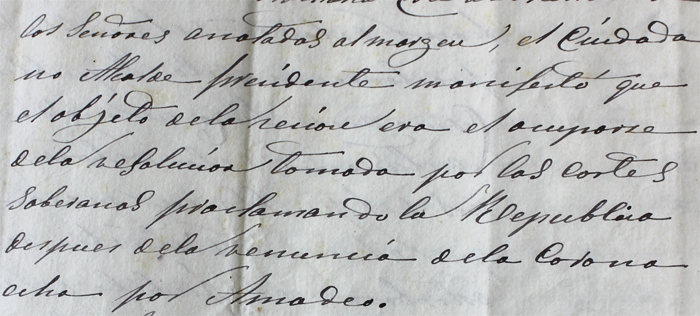 los Señores anotados al margen, el Ciudada
no Alcalde presidente manifestó que
el objeto de la sesion era el ocuparse
de la resolucion tomada por las cortes
soberanas proclamando la Republica
despues de la renuncia de la Corona
echa por Amadeo.